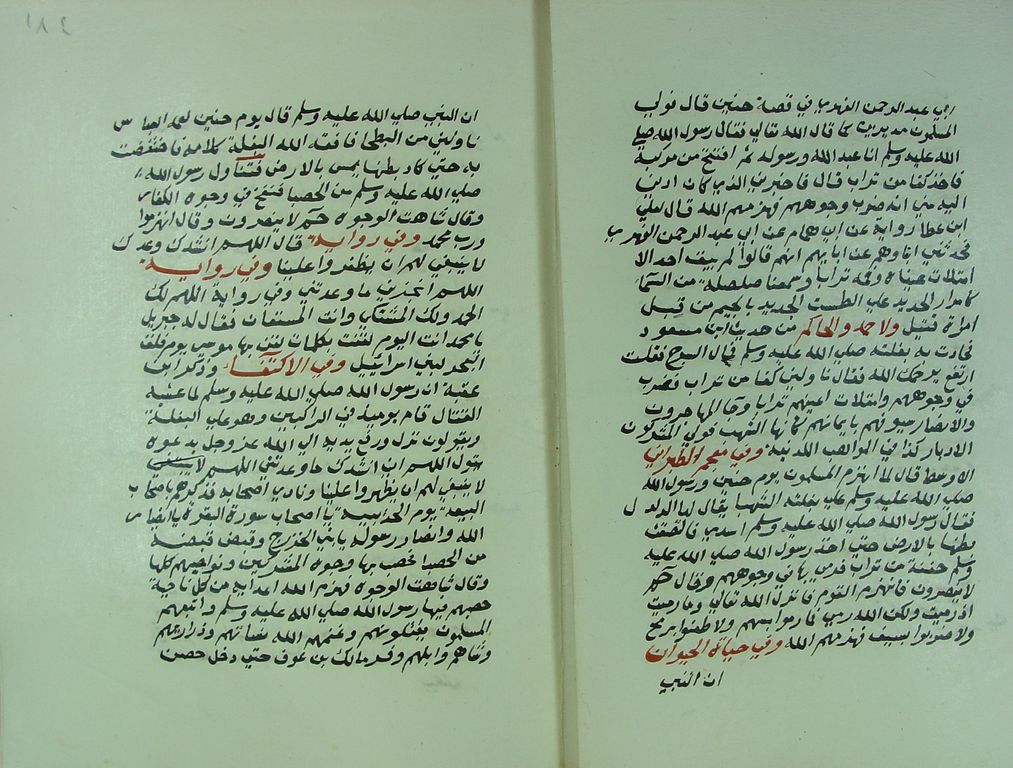 ابي عبد الرحمن الفهري في قصة حنين قال فولي
المسلمون مدبرين كما قال الله تعالي فقال رسول الله صلي
الله عليه وسلم انا عبد الله ورسوله ثم اقتحم من مركبه
فاخذ كفا من تراب قال فاخبرني الذي كان ادني
اليه مني انه ضرب وجوههم فهزمهم الله قال يعلي
ابن عطا رواية عن ابي همام عن ابي عبد الرحمن الفهري
فحدثني ابناوهم عن ابايهم انهم قالوا لم يبق احد الا
امتلات عيناه وفمه ترابا وسمعنا صلصلة من السما
كامرار الحديد علي الطست الحديد بالجيم من قبل
امراة قتيل ولاحمد والحاكم من حديث ابن مسعود
فحادت به بغلته صلي الله عليه وسلم فمال السرج فقلت
ارتفع يرحمك الله فقال ناولني كفا من تراب فضرب
في وجوههم وامتلات اعينهم ترابا وجا المهاجرون
والانصار سيوفهم بايمانهم كانها الشهب فولي المشركون
الادبار كذا في المواهب اللدنية وفي معجم الطبراني
الاوسط قال لما انهزم المسلمون يوم حنين ورسول الله
صلي الله عليه وسلم علي بغلته الشهبا يقال لها الدلدل
فقال رسول الله صلي الله عليه وسلم اسدي فالصقت
بطنها بالارض حتي اخذ رسول الله صلي الله عليه
وسلم حفنة من تراب فرمي بها في وجوههم وقال حم
لا ينصرون فانهزم القوم فانزل الله تعالي وما رميت
اذ رميت ولكن الله رمي فما رموا بسهم ولا طعنوا برمح
ولا ضربوا بسيف فهزمهم الله وفي حياة الحيوان
ان النبي
١٨٤
ان النبي صلي الله عليه وسلم قال يوم حنين لعمه العباس
ناولني من البطحا فافقه الله البغلة كلامه فانخفضت
به حتي كاد بطنها يمس بالارض فتناول رسول الله
صلي الله عليه وسلم من الحصبا فنفخ في وجوه الكفار
وقال شاهت الوجوه حم لا ينصرون وقال انهزموا
ورب محمد وفي رواية قال اللهم انشدك وعدك
لا ينبغي لهم ان يظهروا علينا وفي رواية
اللهم انجز لي ما وعدتني وفي رواية اللهم لك
الحمد ولك المشتكي وانت المستعان فقال له جبريل
يا محمد انت اليوم لقنت بكلمات لقن بها موسي يوم فلق
البحر لبني اسراييل وفي الاكتفا وذكر ابن
عقبة ان رسول الله صلي الله عليه وسلم لما غشيه
القتال قام يوميذ في الراكبين وهو علي البغلة
ويقولون نزل ورفع يديه الي الله عز وجل يدعوه
يقول اللهم اني انشدك ما وعدتني اللهم لا ينبغي
لا ينبغي لهم ان يظهروا علينا ونادي اصحابه فذكرهم يا صحاب
البيعة يوم الحديبية يا اصحاب سورة البقرة يا انصار
الله وانصار رسوله يا بني الخزرج وقبض قبضة
من الحصبا فحصب بها وجوه المشركين ونواحيهم كلها
وقال شاهت الوجوه فهزم الله اعداه من كل ناحية
حصبهم فيها رسول الله صلي الله عليه وسلم واتبعهم
المسلمون يقتلونهم وغنمهم الله نساهم وذراريهم
وشاهم وابلهم وفر مالك بن عوف حتي دخل حصن